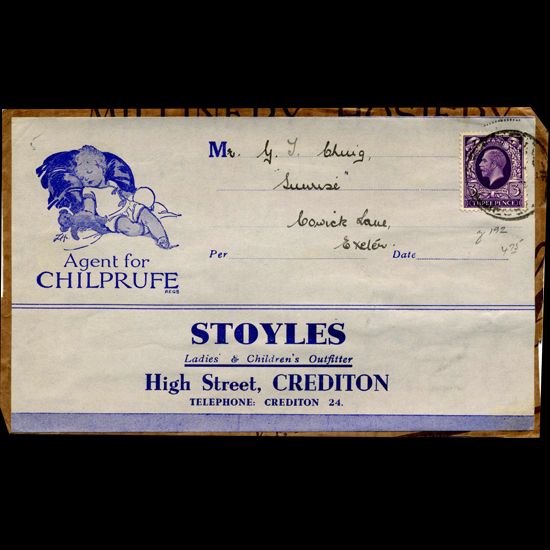 MILLINERY HOSIERY
Mr. G. J. Chuig,
"Sunrise"
Cowick Lane,
Exeter.
Per Date
THREE PENCE
3
g 192
4 75
Agent for
CHILPRUFE
REGD
STOYLES
Ladies' & Children's Outfitter
High Street, CREDITON
TELEPHONE: CREDITON 24.